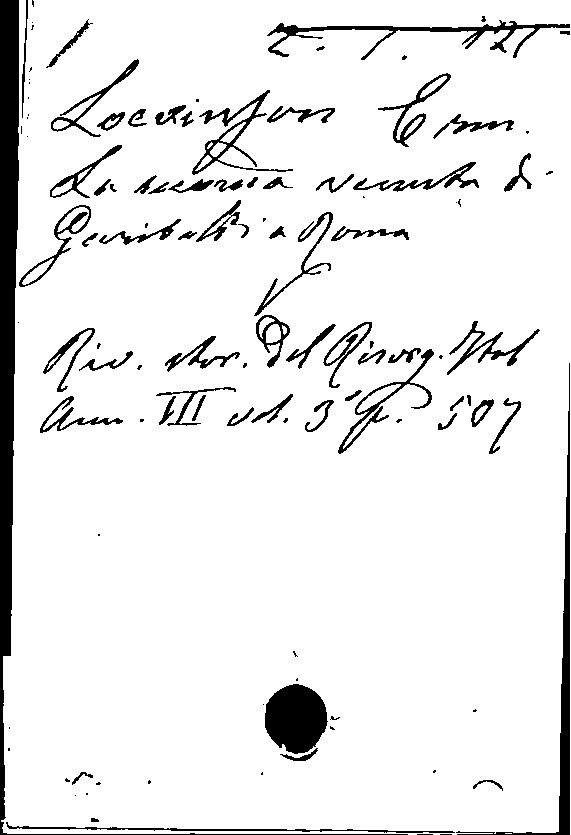 2. 1. 121
Loevinson Erm.
La seconda venuta di
Garibaldi a Roma
V
Riv. stor. del Risorg. Ital
Ann. VII vol. 3° p. 507